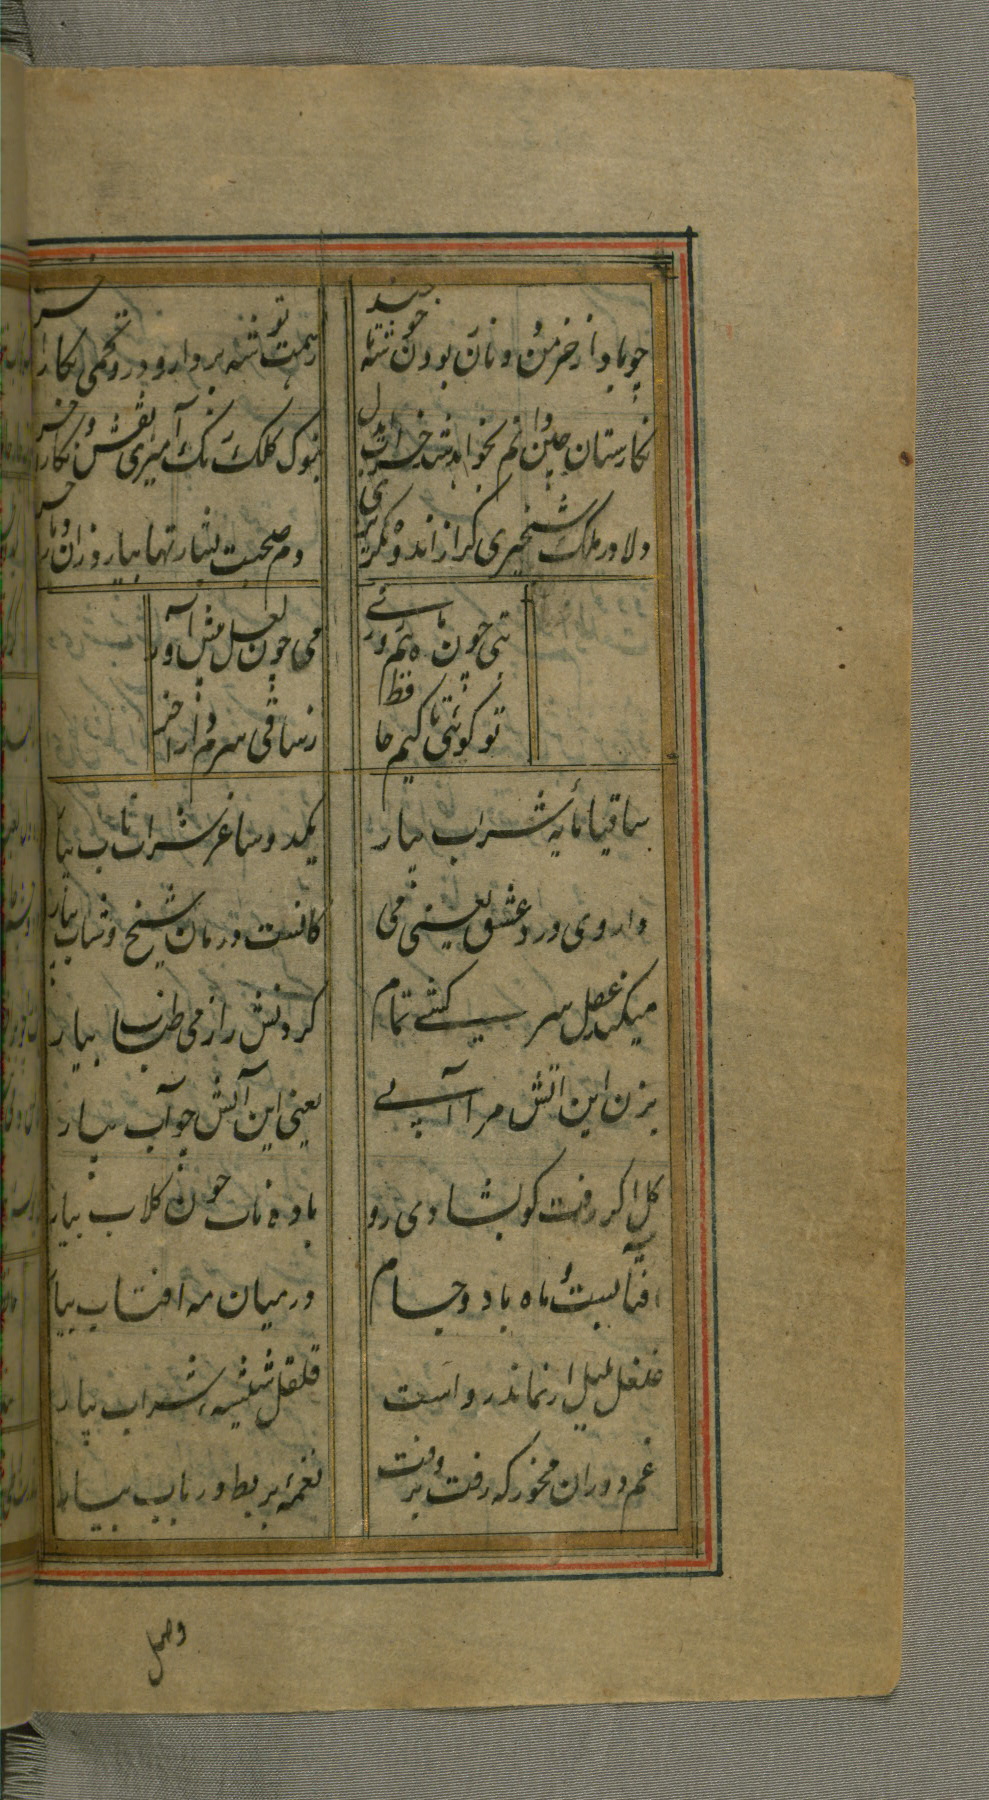 چو باد از خرمن دونان ربودن خوشه تا چند
ز همت توشه بردار و خود تخمی بکار آخر
نگارستان چین دانم نخواهد شد سرایت لیک
بنوک کلک رنگ آمیز نقش و نگار آخر
دلا در ملک شبخیزی گر از اندوه نگریزی
دم صحبت بشارتها بیارد زان دیار آخر
بتی چون ماه زانو زد
می چون لعل پیش آورد
تو گوئی تائبم حافظ
ز ساقی شرم دار آخر
ساقیا مایه شراب بیار
یکدو ساغر شراب ناب بیار
داروی درد عشق یعنی می
کانست درمان شیخ و شاب بیار
میکند عقل سرکشی تمام
گردنش را ز می طناب بیار
بزن این آتش مرا آبی
یعنی این آتش چو آب بیار
گل اگر رفت گو بشادی رو
باده ناب چون گلاب بیار
آفتابست و ماه باده و جام
در میان مه آفتاب بیار
غلغل بلبل ار نماند رواست
قلقل شیشه شراب بیار
غم دوران مخور که رفت برفت
نغمه بربط و رباب بیار
وصل